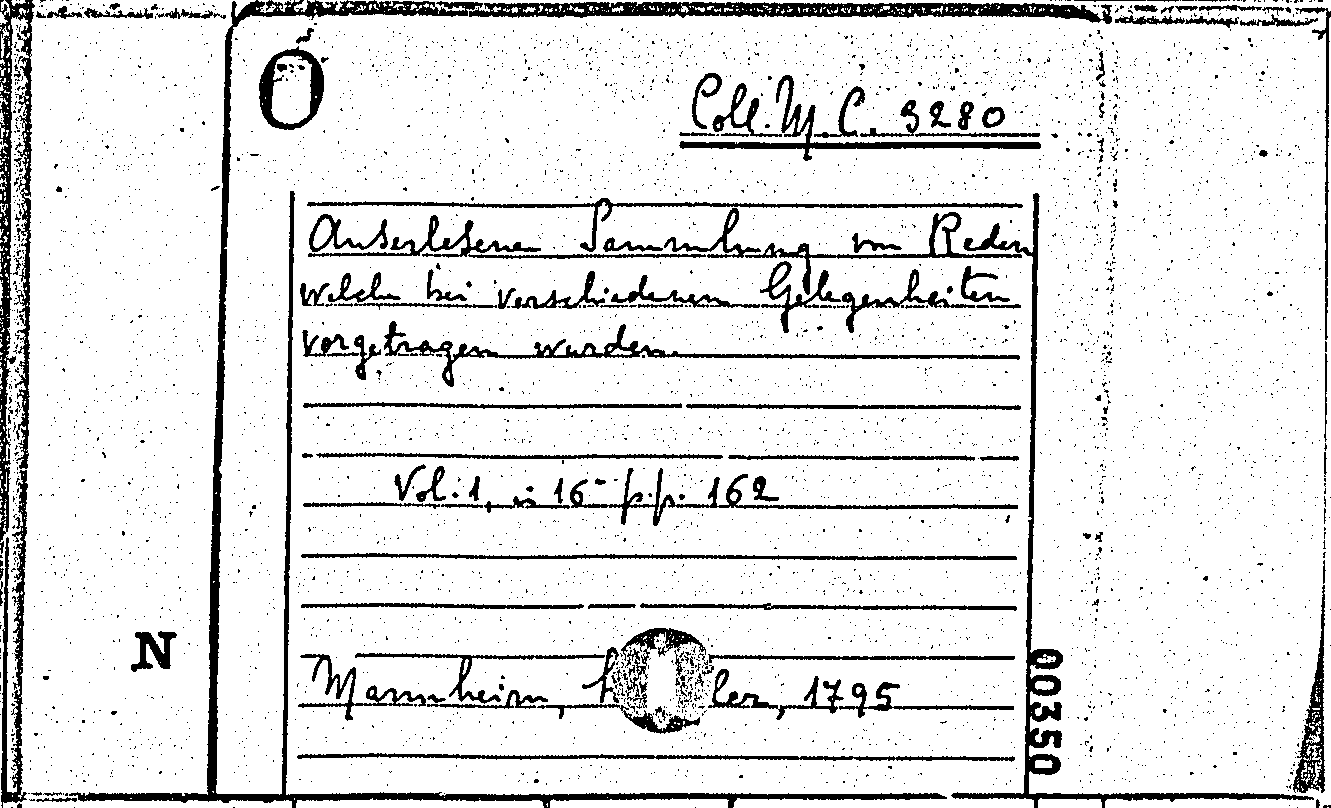 O
Coll. M. C. 3280
Auserlesene Sammlung von Reden
welche bei verschiedenen Gelegenheiten
vorgetragen wurden.
Vol. 1, in 16- p.p. 162
Mannheim, 1795
N
00350